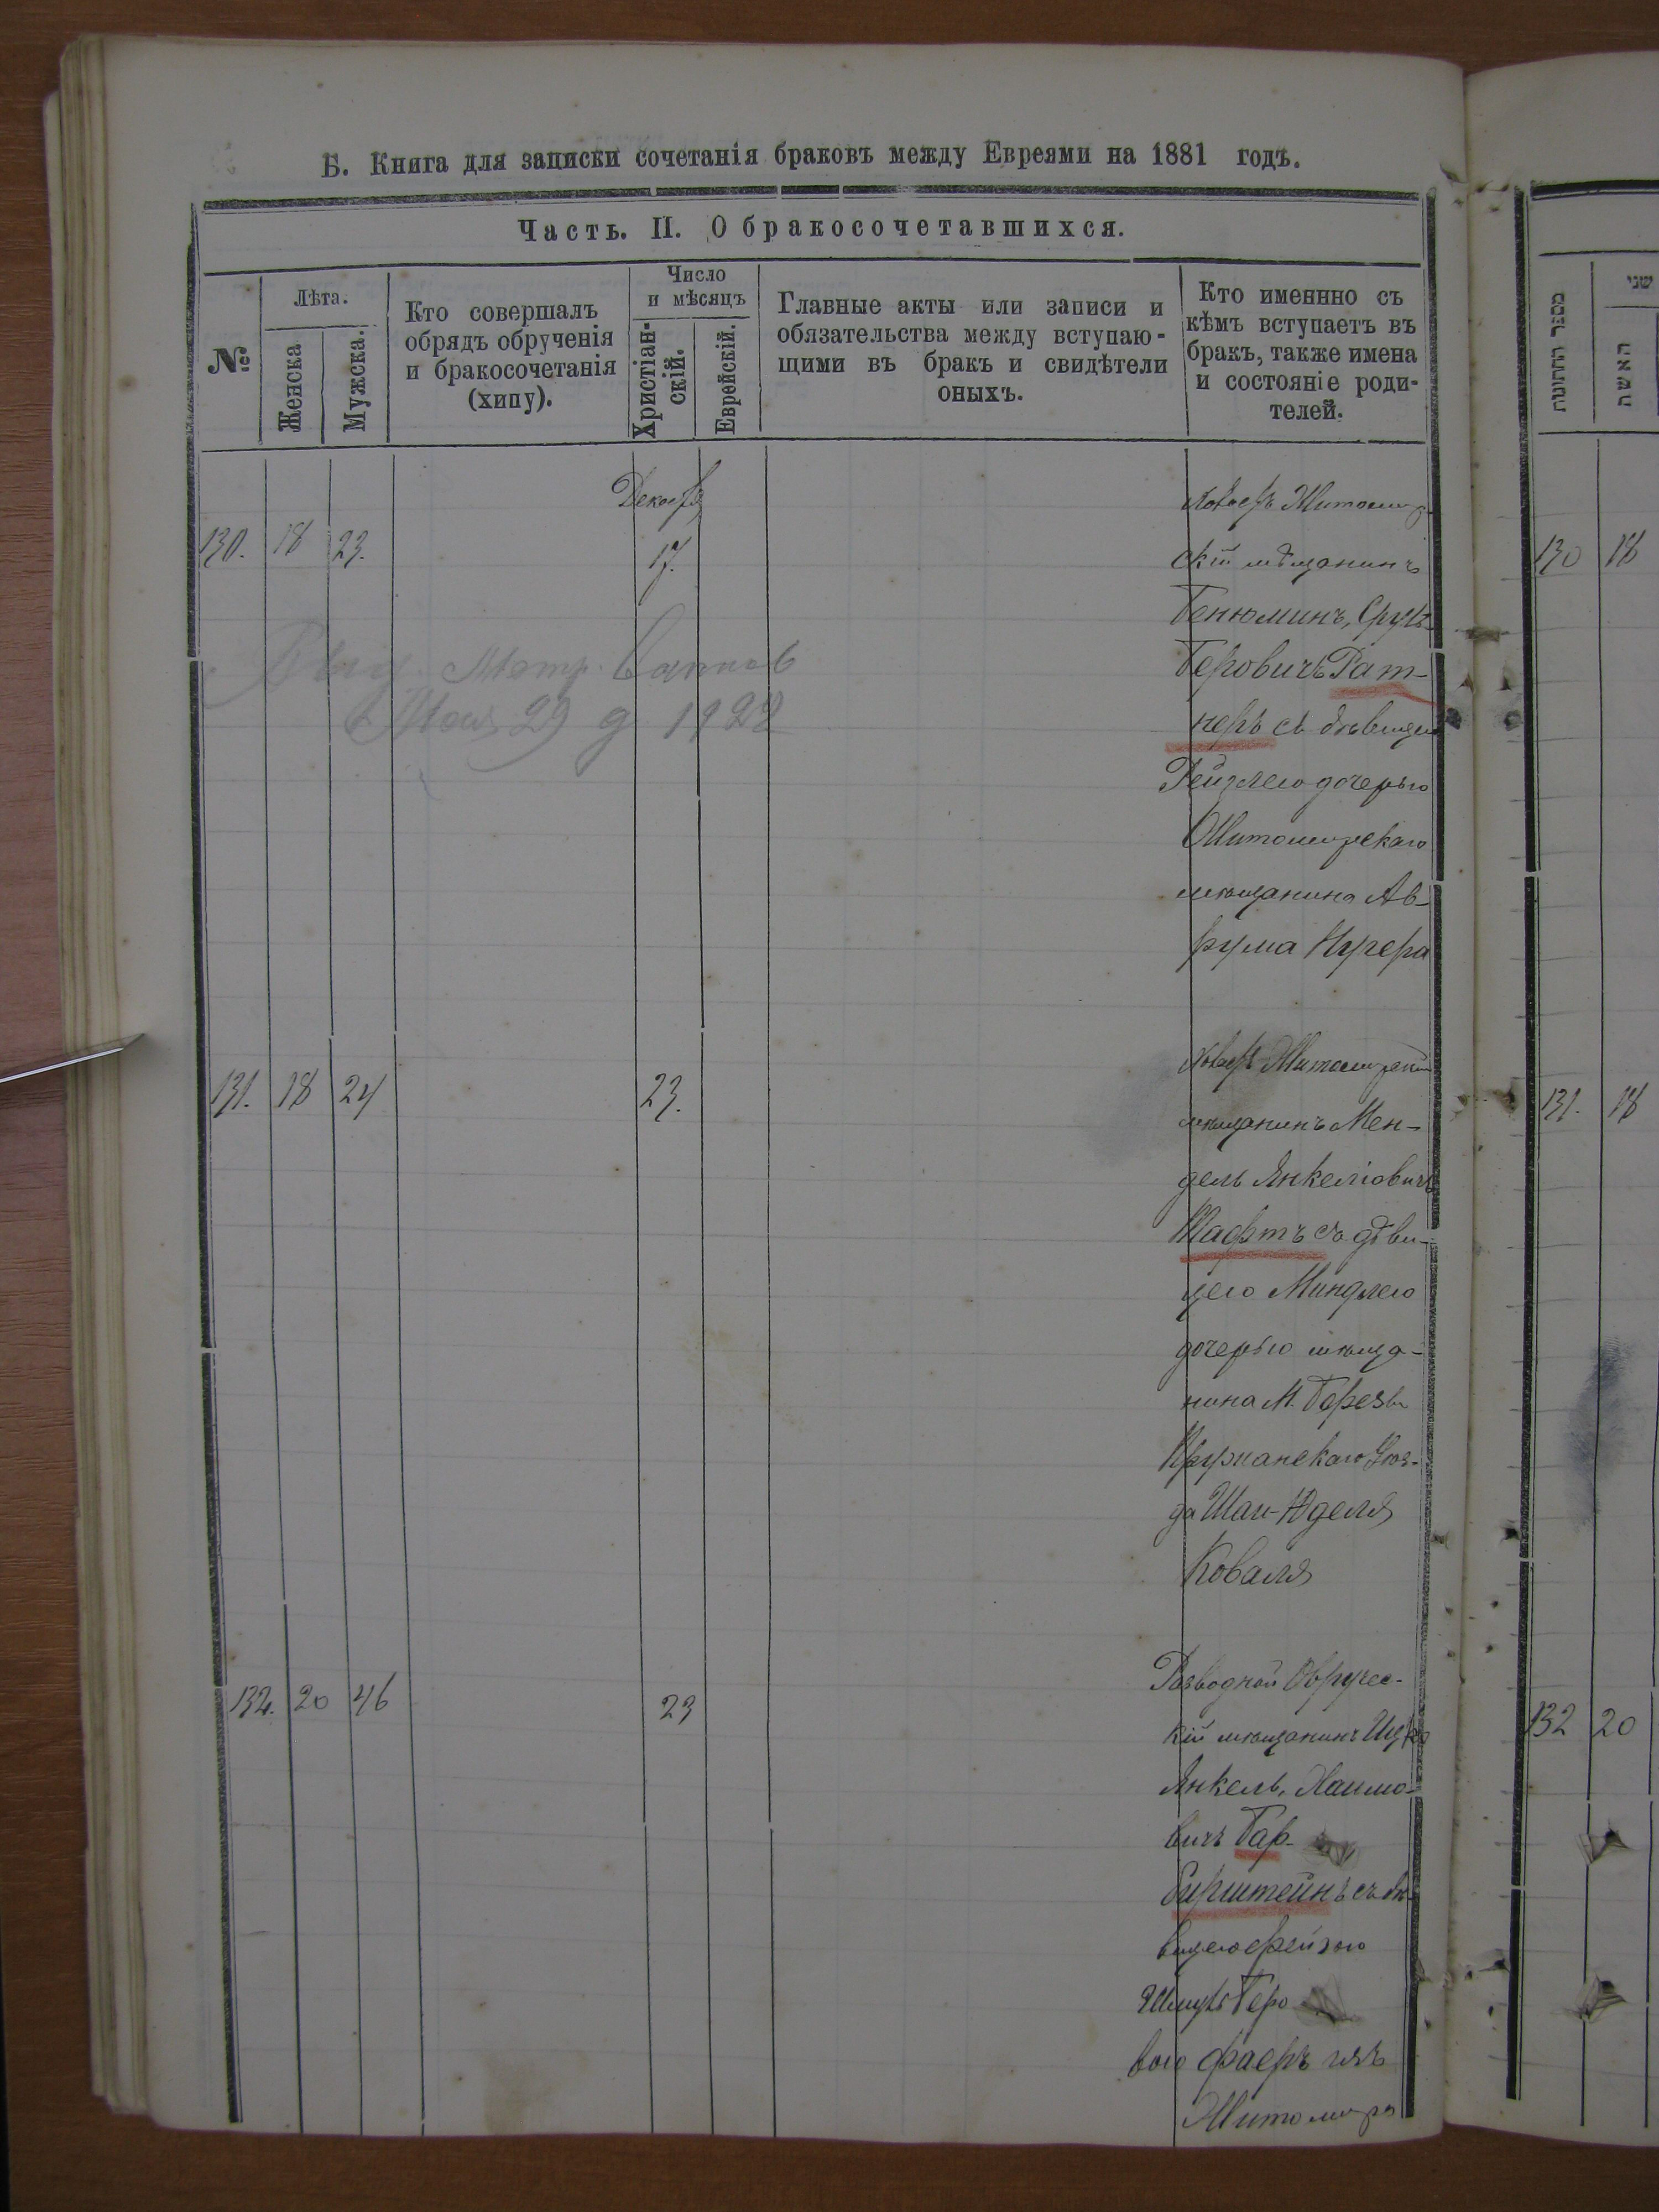 Б. Книга для записки сочетанія браковъ между Евреями на 1881 годъ.
Часть. II. О бракосочетавшихся.
№
Лѣта.
Женска
Мужска.
Кто совершалъ
обрядъ обрученія
и бракосочетанія
(хипу).
Число
и мѣсяцъ
Христіан-
скій.
Еврейскій.
Главные акты или записи и
обязательства между вступаю-
щими въ бракъ и свидѣтели
оныхъ.
Кто именнно съ
кѣмъ вступаетъ въ
бракъ, также имена
и состояніе роди-
телей.
Декабря
130. 18 23. 17.
Холостъ Житомир-
скій мѣщанинъ
Бенюминъ, Сруль
Беровичъ Рат-
неръ съ дѣвицею
Рейзлею дочерью
Житомирскаго
мѣщанина Ав-
рума Кучера
Мая 29 д 1922
131. 18 24 23.
Холостъ Житомирскій
мѣщанинъ Мен-
дель Янкеліовичъ
Шафтъ съ дѣви-
цею Миндлею
дочерью мѣща-
нина М. Березы
Пружанскаго Уѣз-
да Шаи-Юделя
Коваля
132. 20 46 23
Разводной Овручес-
кій мѣщанинъ Ицко
Янкель, Хаимо-
вичъ Бар-
бирштейнъ съ дѣ-
вицею Фейгою
Шмуль Беро-
вою Фаеръ изъ
Житомира
מספר החתונות
שני
האשה
130 18
131. 18
132 20